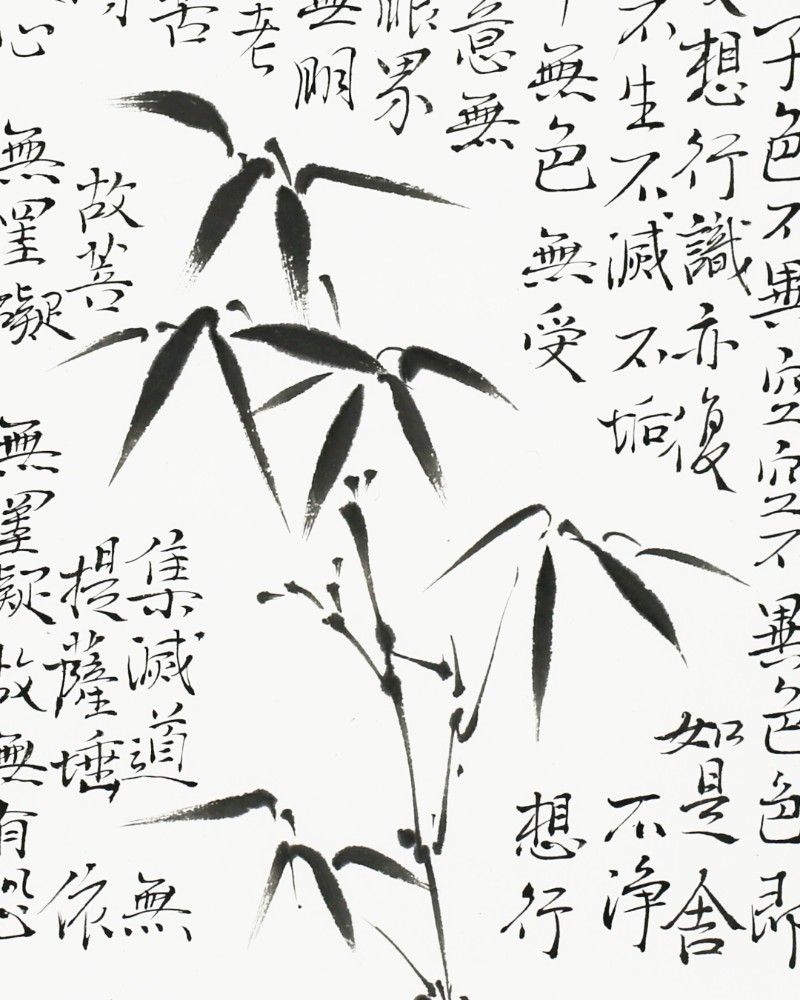 子色不異空空不異色色即
想行識亦復如是舍
不生不滅不垢不净
無色無受想行
意無
眼界
無明
老
苦集滅道無
故菩提薩埵依
心無罣礙無罣礙故無有恐